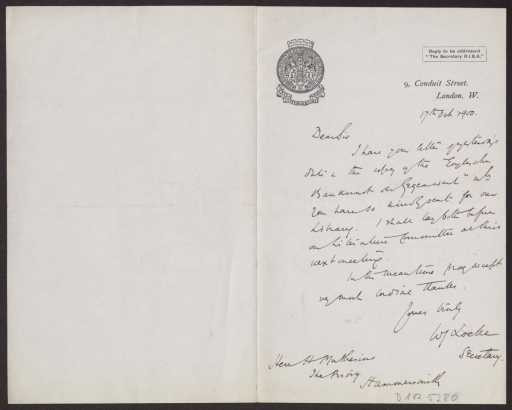 Reply to be addressed
"The Secretary R.I.B.A."
9, Conduit Street,
London, W.
17th Feb 1900.
Dear Sir
I have your letter of yesterday's
date & the copy of the Englische
Baukunst der Gegenwart" wh
you have so kindly sent for our
Library. I shall lay both before
our Literature Committee at their
next meeting.
In the meantime pray accept
my most cordial thanks.
Yours truly
W J Locke
Secretary.
Herr H Muthesius
The Priory
Hammersmith